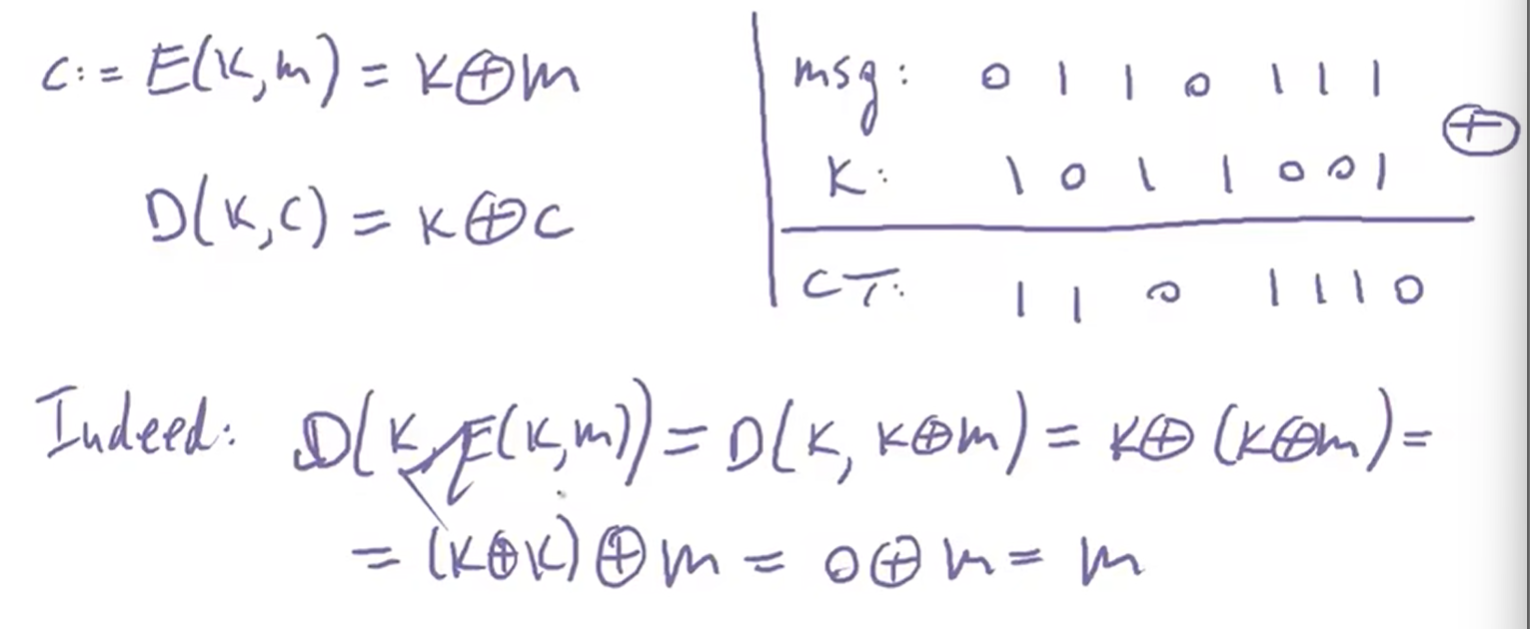 c := E(k,m) = k⊕m
D(k,c) = k⊕c
msg: 0 1 1 0 1 1 1
k: 1 0 1 1 0 0 1 ⊕
CT: 1 1 0 1 1 1 0
Indeed: D(k, E(k,m)) = D(k, k⊕m) = k⊕(k⊕m) =
= (k⊕k)⊕m = 0⊕m = m